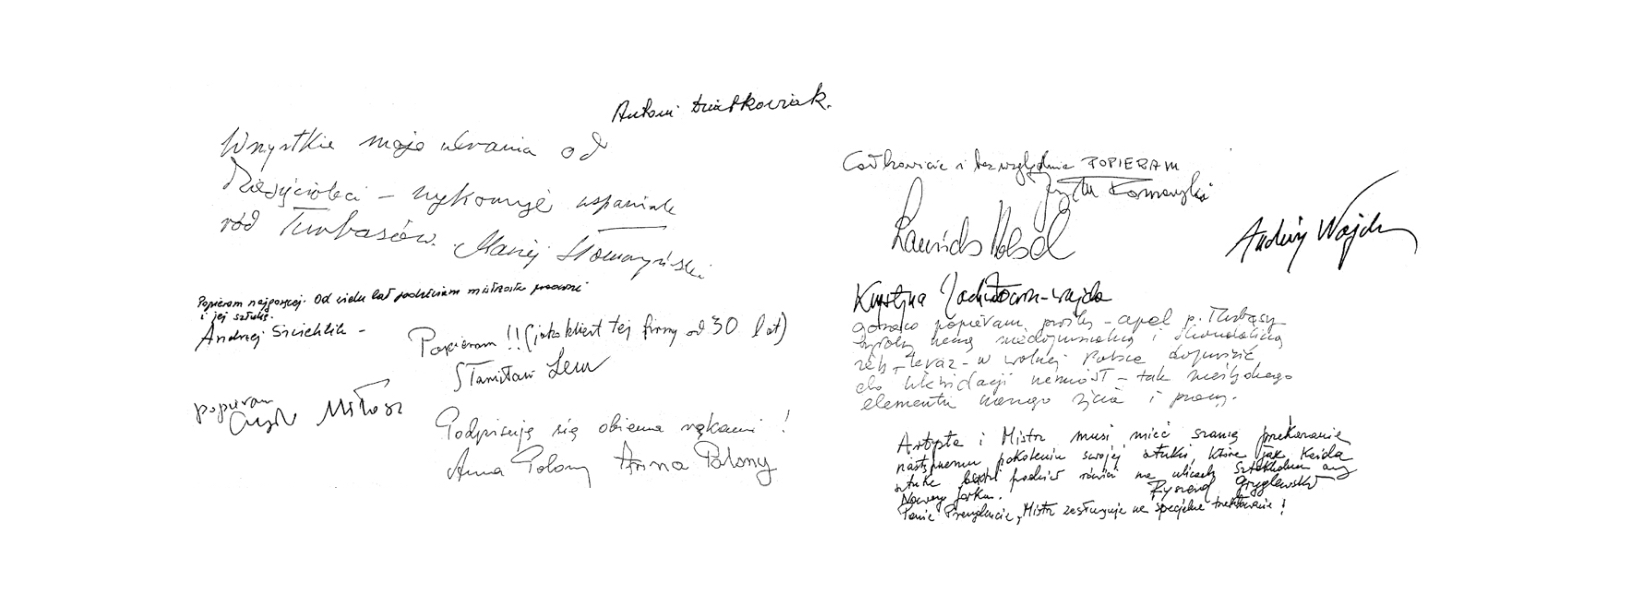 Antoni Dziatkowiak.
Wszystkie moje ubrania od
dziesięcioleci – wykonuje wspaniale
ród Turbasów. Maciej Słomczyński
Popieram najgoręcej. Od wielu lat podziwiam mistrzostwo pracowni
i jej sztukę.
Andrzej Siciehlik -
Popieram !! (jako klient tej firmy od 30 lat)
Stanisław Lem
popieram
Czesław Miłosz
Podpisuję się obiema rękami !
Anna Polony Anna Polony
Całkowicie i bezwzględnie POPIERAM
Andrzej Wajda
Krystyna Zachwatowicz-Wajda
gorąco popieram prośbę – apel p. Turbasy
byłoby rzeczą niedopuszczalną i skandaliczną
żeby – teraz – w wolnej Polsce dopuścić
do likwidacji rzemiosł – tak niezbędnego
elementu naszego życia i pracy.
Artysta i Mistrz musi mieć szansę przekazania
następnemu pokoleniu swojej sztuki, które jak każda
sztukę będzie podziw również na ulicach Sztokholmu czy
Nowego Jorku. Ryszard Gryglewski
Panie Prezydencie, Mistrz zasługuje na specjalne traktowanie !